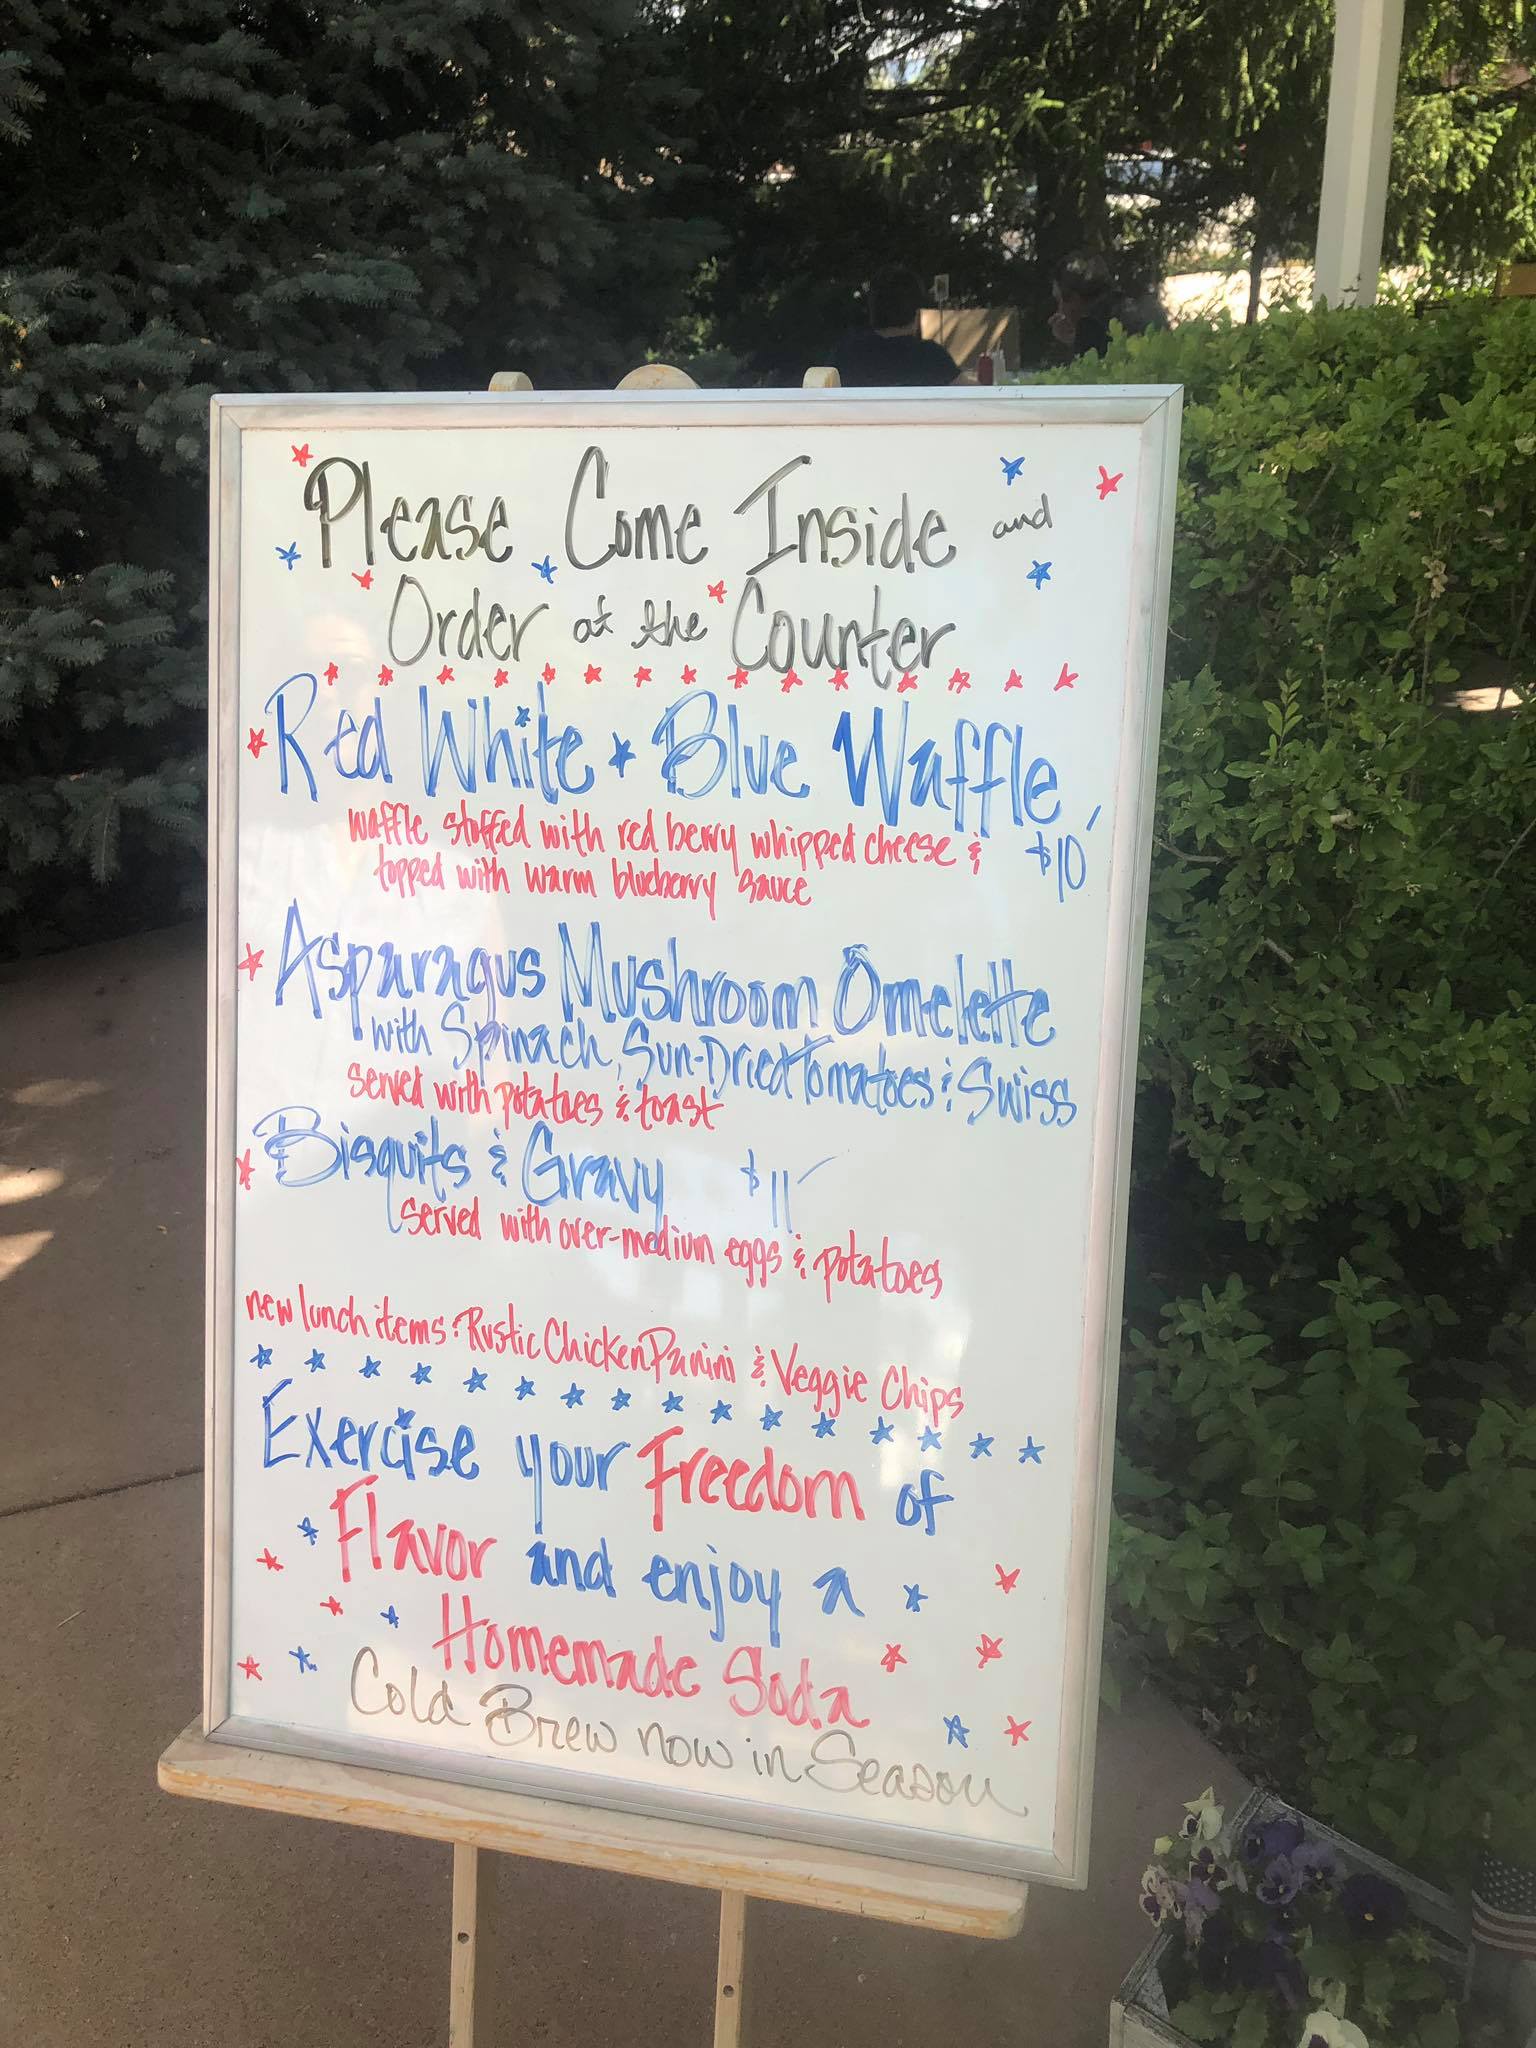 Please Come Inside and
Order at the Counter
Red White & Blue Waffle
waffle stuffed with red berry whipped cheese & $10
topped with warm blueberry sauce
Asparagus Mushroom Omelette
with Spinach, Sun-Dried Tomatoes & Swiss
served with potatoes & toast
Bisquits & Gravy $11
served with over-medium eggs & potatoes
new lunch items: Rustic Chicken Panini & Veggie Chips
Exercise your Freedom of
Flavor and enjoy a
Homemade Soda
Cold Brew now in Season